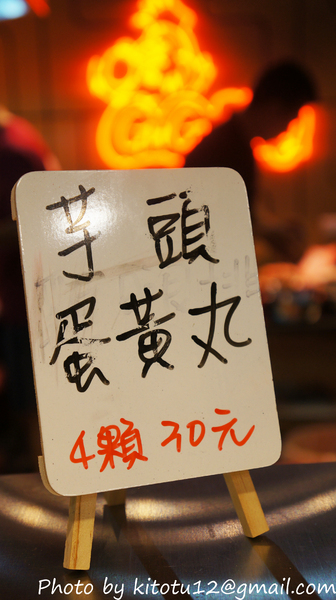 芋頭
蛋黃丸
4顆 30元
Photo by kitotu12@gmail.com